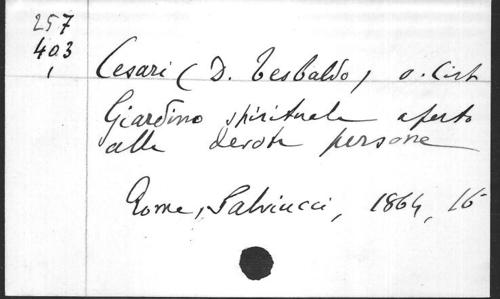 257
403
1
Cesari (D. Tesbaldo) o. Cist
Giardino spirituale aperto
alle devote persone
Rome, Salviucci, 1864, 16°